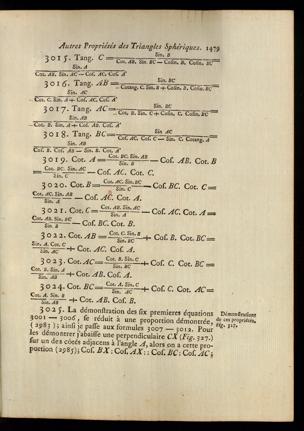 Autres Propriétés des Triangles Sphériques. 1479
3015. Tang. C = Sin. B
Cot. AB. Sin. BC — Cosin. B. Cosin. BC =
Sin. A
Cot. AB. Sin. AC — Cos. AC. Cos. A
3016. Tang. AB = Sin. BC
Cotang. C. Sin. B + Cosin. B. Cosin. BC =
Sin. AC
Cot. C. Sin. A + Cos. AC. Cos. A
3017. Tang. AC = Sin. BC
Cot. B. Sin. C + Cosin. C. Cosin. BC =
Sin. AB
Cot. B. Sin. A + Cos. AB. Cos. A
3018. Tang. BC = Sin. AC
Cos. AC. Cos. C — Sin. C. Cotang. A =
Sin. AB
Cos. B. Cos. AB — Sin. B. Cot. A
3019. Cot. A = Cot. BC. Sin. AB / Sin. B — Cos. AB. Cot. B
= Cot. BC. Sin. AC / Sin. C — Cos. AC. Cot. C.
3020. Cot. B = Cot. AC. Sin. BC / Sin. C — Cos. BC. Cot. C =
Cot. AC. Sin. AB / Sin. A — Cos. AC. Cot. A.
3021. Cot. C = Cot. AB. Sin. AC / Sin. A — Cos. AC. Cot. A =
Cot. AB. Sin. BC / Sin. B — Cos. BC. Cot. B.
3022. Cot. AB = Cot. C. Sin. B / Sin. BC + Cos. B. Cot. BC =
Sin. A. Cot. C / Sin. AC + Cot. AC. Cos. A.
3023. Cot. AC = Cot. B. Sin. C / Sin. BC + Cos. C. Cot. BC =
Cot. B. Sin. A / Sin. AB + Cot. AB. Cos. A.
3024. Cot. BC = Cot. A. Sin. C / Sin. AC + Cos. C. Cot. AC =
Cot. A. Sin. B / Sin. AB + Cot. AB. Cos. B.
3025. La démonstration des six premieres équations
3001 — 3006, se réduit à une proportion démontrée,
(2983); ainsi je passe aux formules 3007 — 3012. Pour
les démontrer j'abaisse une perpendiculaire CX (Fig. 327.)
sur un des côtés adjacens à l'angle A, alors on a cette pro-
portion (2985); Cos. BX : Cos. AX :: Cos. BC : Cos. AC;
Démonstration
de ces propriétés,
Fig. 327.